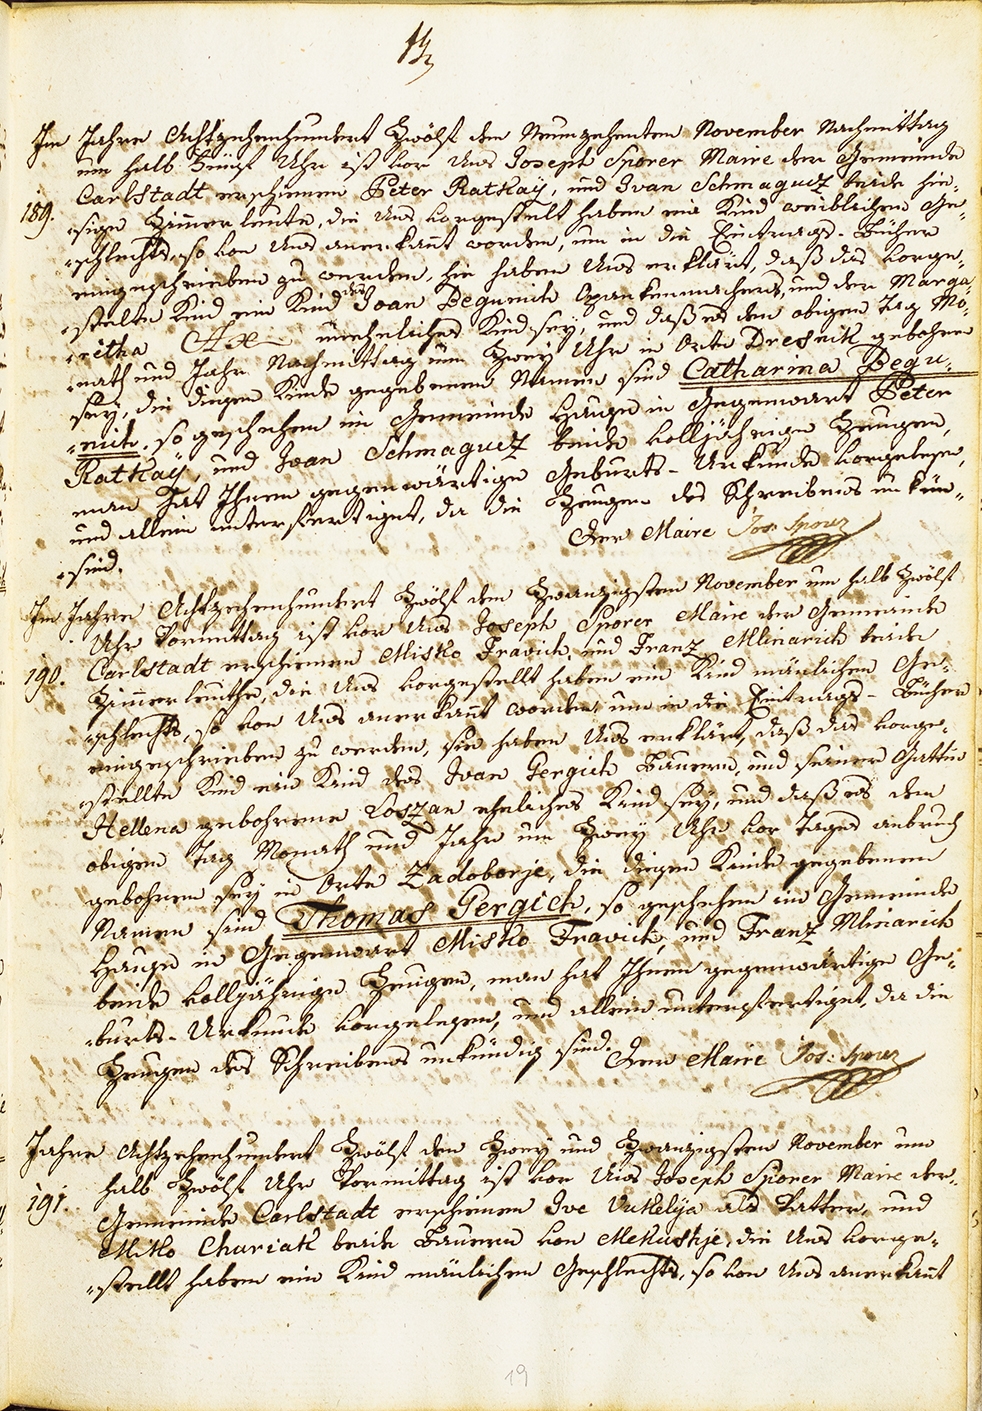 Im Jahre Achtzehenhundert Zwölf den Neunzehenten November Nachmittag
um halb Fünf Uhr ist vor Uns Joseph Sporer Maire der Gemeinde
Carlstadt erschienen Peter Ratkaÿ, und Ivan Schmaguez beide hie-
189. sige Zimmerleute, die Uns vorgestelt haben ein Kind weiblichen Ge-
schlechts, so von Uns anerkannt worden, um in die Eintrags-Bücher
eingeschrieben zu werden, sie haben Uns erklärt, daß das vorge-
stelte Kind ein Kind des Ivan Begunich Opankenmachers, und der Marga-
retha uneheliches Kind seÿ, und daß es den obigen Tag Mo-
nath und Jahr Nachmittag um Zweÿ Uhr in Orte Dresnik gebohren
seÿ, die diesen Kinde gegebenen Namen sind Catharina Begu-
nich. so geschehen im Gemeinde Hause in Gegenwart Peter
Ratkaÿ, und Ivan Schmaguez beide volljährige Zeugen,
man hat Ihnen gegenwärtige Geburts-Urkunde vorgelesen,
und allein unterfertiget, da die Zeugen des Schreibens unkün-
sind. Der Maire Jos: Sporer
Im Jahre Achtzehenhundert Zwölf den Zwanzigsten November um halb Zwölf
Uhr Vormittag ist vor Uns Joseph Sporer Maire der Gemeinde
190. Carlstadt erschienen Misko Travich, und Franz Mlinarich beide
Zimmerleuthe, die Uns vorgestellt haben ein Kind mänlichen Ge-
schlechts, so von Uns anerkannt worden, um in die Eintrags-Bücher
eingeschrieben zu werden, sie haben Uns erklärt, daß das vorge-
stellte Kind ein Kind des Ivan Gergich Bauern, und seiner Gattin
Hellena gebohrene Loszan eheliches Kind seÿ, und daß es den
obigen Tag Monath und Jahr um Zweÿ Uhr vor Tages anbruch
gebohren seÿ in Orte Zadoborje, die diesen Kinde gegebenen
Namen sind Thomas Gergich, so geschehen im Gemeinde
Hause in Gegenwart Misko Travich, und Franz Mlinarich
beide volljährige Zeugen, man hat Ihnen gegenwärtige Ge-
burts-Urkunde vorgelesen, und allein unterfertiget, da die
Zeugen des Schreibens unkündig sind. Der Maire Jos: Sporer
Jahre Achtzehenhundert Zwölf den Zweÿ und Zwanzigsten November um
halb Zwölf Uhr Vormittag ist vor Uns Joseph Sporer Maire der
191. Gemeinde Carlstadt erschienen Ive Vukelija als Vatter, und
Mitko Churiak beide Bauern von Mekushje, die Uns vorge-
stellt haben ein Kind mänlichen Geschlechts, so von Uns anerkannt
19